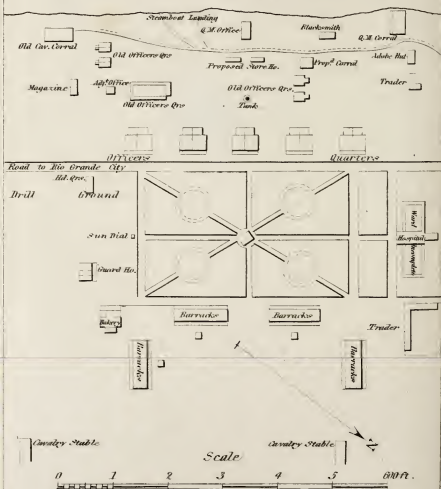 Steamboat Landing
Q.M. Office
Blacksmith
Q.M. Corral
Old Cav. Corral
Old Officers Qrs
Proposed Store Ho.
Prop.d Corral
Adobe Hut
Magazine
Adj.t Office
Old Officers Qrs
Old Officers Qrs.
Tank
Trader
Officers Quarters
Road to Rio Grande City
Hd. Qrs.
Drill Ground
Sun Dial
Guard Ho.
Ward
Hospital
Bakery
Barracks
Barracks
Trader
Barracks
Barracks
N.
Cavalry Stable
Cavalry Stable
Scale
0 1 2 3 4 5 600 ft.